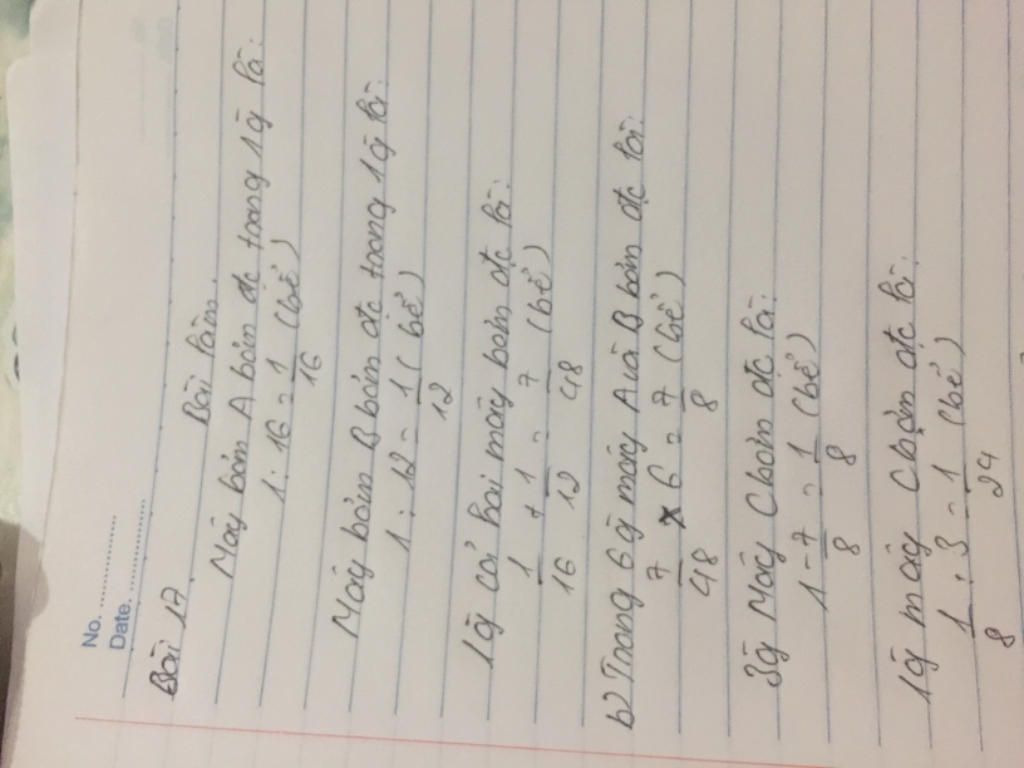 No. ................
Date. ................
Bài 17.
Bài làm.
Máy bơm A bơm đc trong 1g là:
1 : 16 = 1/16 (bể)
Máy bơm B bơm đc trong 1g là:
1 : 12 = 1/12 (bể)
1g cả hai máy bơm đc là:
1/16 + 1/12 = 7/48 (bể)
b) Trong 6g máy A và B bơm đc là:
7/48 x 6 = 7/8 (bể)
3g Máy C bơm đc là:
1 - 7/8 = 1/8 (bể)
1g máy C bơm đc là:
1/8 : 3 = 1/24 (bể)